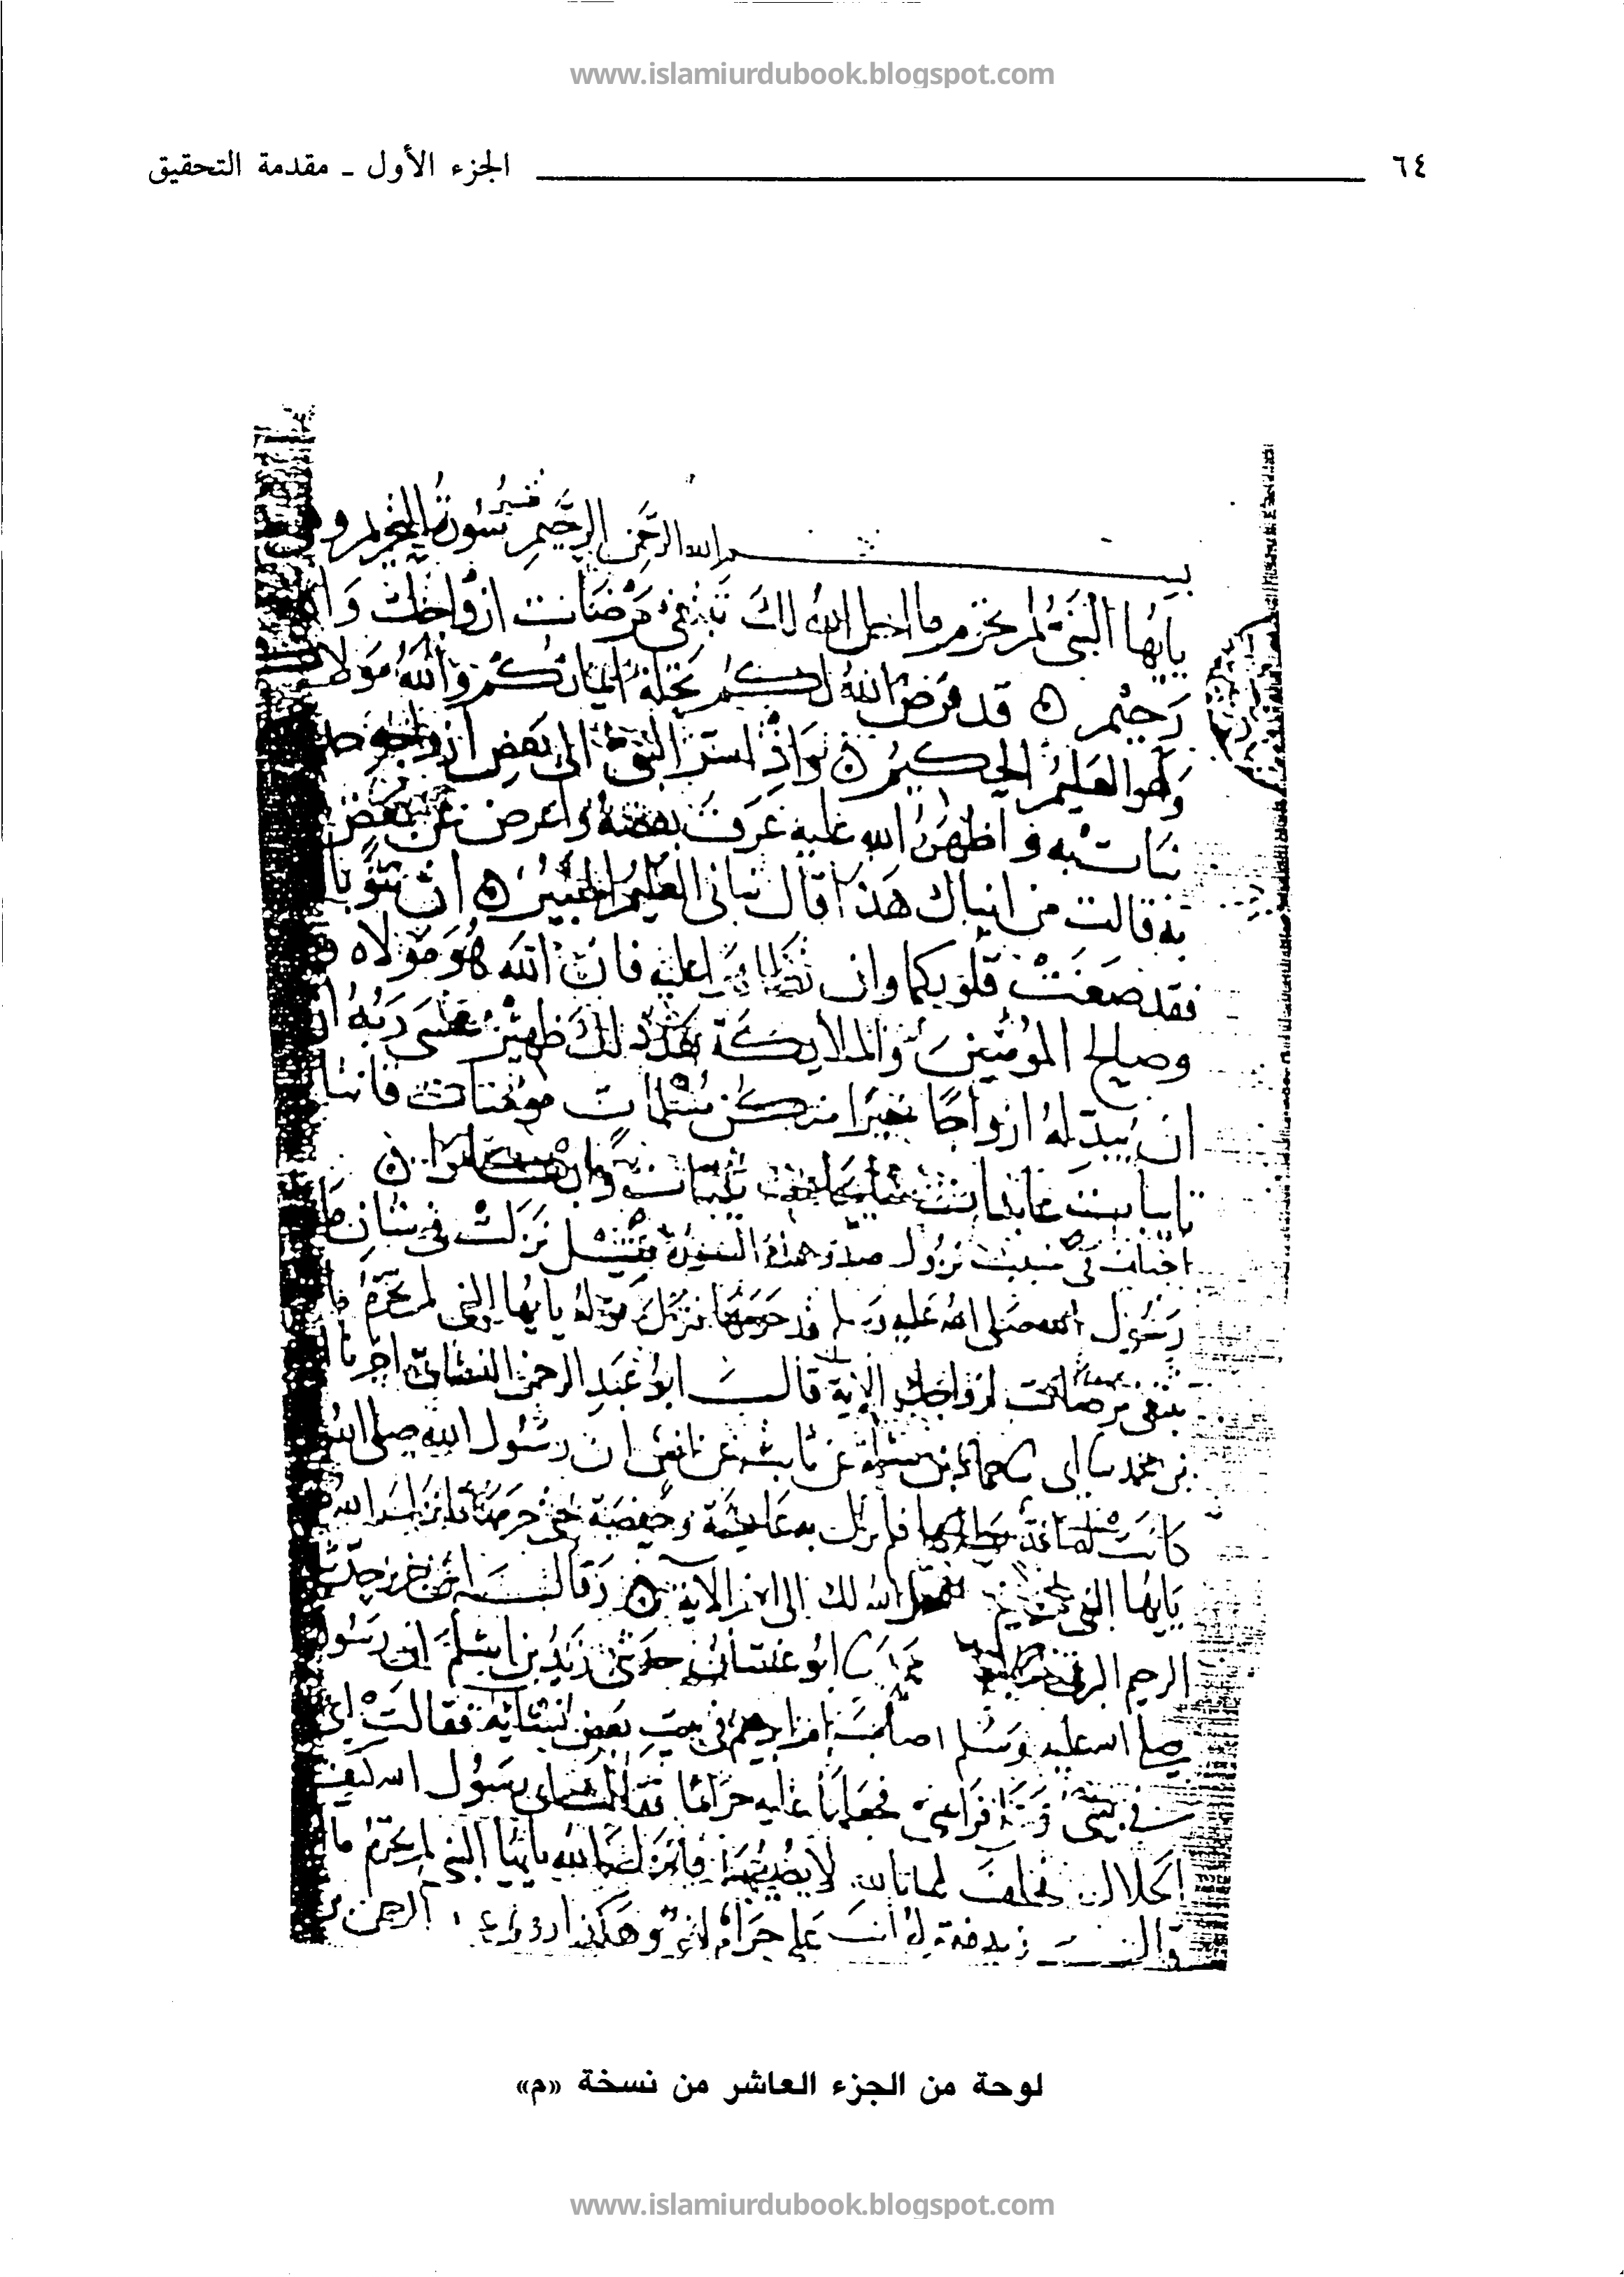 www.islamiurdubook.blogspot.com
٦٤ الجزء الأول ـ مقدمة التحقيق
بسم الله الرحمن الرحيم تفسير سورة التحريم وهي
يايها النبي لم تحرم ما احل الله لك تبتغي مرضات ازواجك والله
رحيم قد فرض الله لكم تحلة ايمانكم والله مولاكم
وهو العليم الحكيم واذ اسر النبي الى بعض ازواجه
نبات به واظهره الله عليه عرف بعضه واعرض عن بعض
به قالت من انباك هذا قال نباني العليم الخبير ان تتوبا
فقد صغت قلوبكما وان تظاهرا عليه فان الله هو مولاه
وصالح المومنين والملايكة بعد ذلك ظهير عسى ربه ان
ان يبدله ازواجا خيرا منكن مسلمات مومنات قانتات
تايبات عابدات سايحات ثيبات وابكارا
اختلف في سبب نزول صدر هذه السورة فقيل نزلت في شان
رسول الله صلى الله عليه وسلم قد حرمها فنزل قوله يايها النبي لم تحرم ما
تبتغي مرضات ازواجك الاية قال ابو عبد الرحمن النسائي اخبرنا
بن محمد ابي حماد بن سلمة عن ثابت عن انس ان رسول الله صلى الله
كانت له امة يطاها فلم تزل به عايشة وحفصة حتى حرمها فانزل الله
يايها النبي لم تحرم ما احل الله لك الى اخر الاية وقال ابن جرير حدثنا
الرحيم البرقي ابو غسان حدثني زيد بن اسلم ان رسول
صلى الله عليه وسلم اصاب ام ابرهيم في بيت بعض نسايه فقالت اي
في بيتي وعلى فراشي فجعلها عليه حراما فقالت اي رسول الله كيف
الحلال فحلف لها بالله لا يصيبها فانزل الله يايها النبي لم تحرم ما
قال زيد فقوله انت علي حرام لغو وهكذا روى
لوحة من الجزء العاشر من نسخة «م»
www.islamiurdubook.blogspot.com